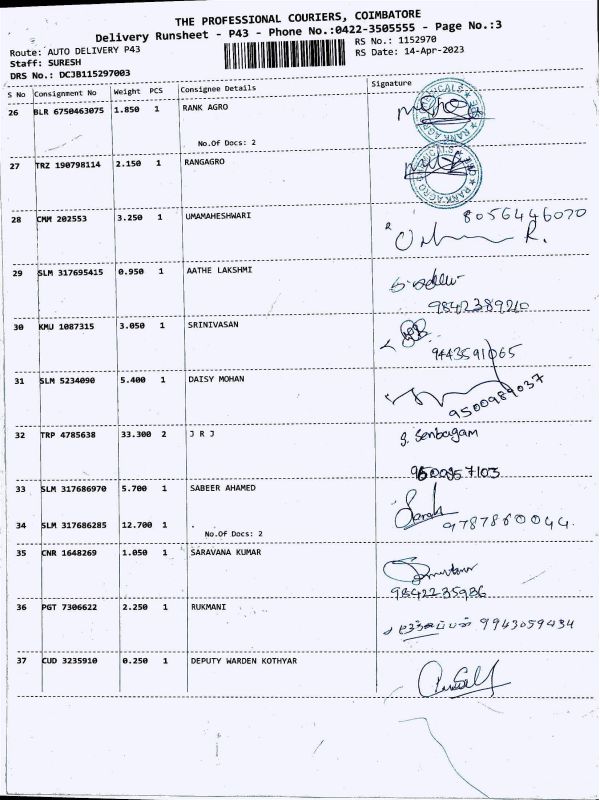 THE PROFESSIONAL COURIERS, COIMBATORE
Delivery Runsheet - P43 - Phone No.:0422-3505555 - Page No.:3
Route: AUTO DELIVERY P43
RS No.: 1152970
Staff: SURESH
RS Date: 14-Apr-2023
DRS No.: DCJB115297003
S No Consignment No Weight PCS Consignee Details Signature
26 BLR 6750463075 1.850 1 RANK AGRO
No.Of Docs: 2
27 TRZ 190798114 2.150 1 RANGAGRO
8056446070
28 CMM 202553 3.250 1 UMAMAHESHWARI
R.
29 SLM 317695415 0.950 1 AATHE LAKSHMI
9842389210
30 KMU 1087315 3.050 1 SRINIVASAN
9443591065
31 SLM 5234090 5.400 1 DAISY MOHAN
9500989037
32 TRP 4785638 33.300 2 J R J
g. Senbagam
33 SLM 317686970 5.700 1 SABEER AHAMED
34 SLM 317686285 12.700 1
No.Of Docs: 2
9787860044.
35 CNR 1648269 1.050 1 SARAVANA KUMAR
9842235986
36 PGT 7306622 2.250 1 RUKMANI
9943059434
37 CUD 3235910 0.250 1 DEPUTY WARDEN KOTHYAR